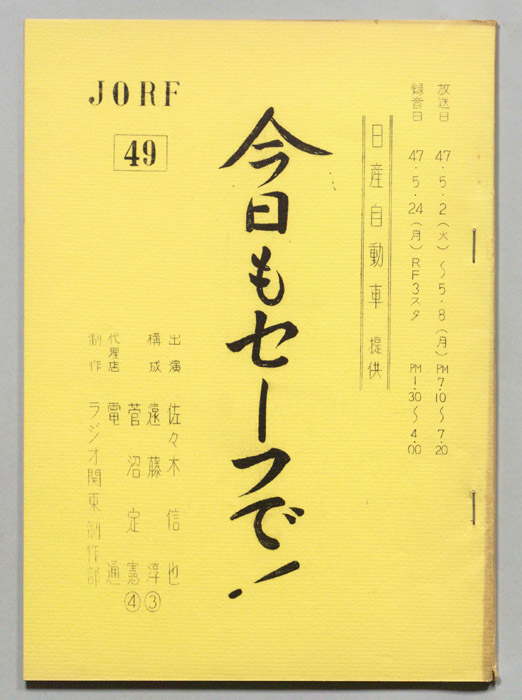 放送日 47・5・2(火)〜5・8(月)PM7.10〜7.20
録音日 47・5・24(月)RF3スタ PM1.30〜4.00
日産自動車 提供
今日もセーフで!
JORF
49
出演 佐々木信也
構成 遠藤淳③
菅沼定憲④
代理店 電通
制作 ラジオ関東制作部